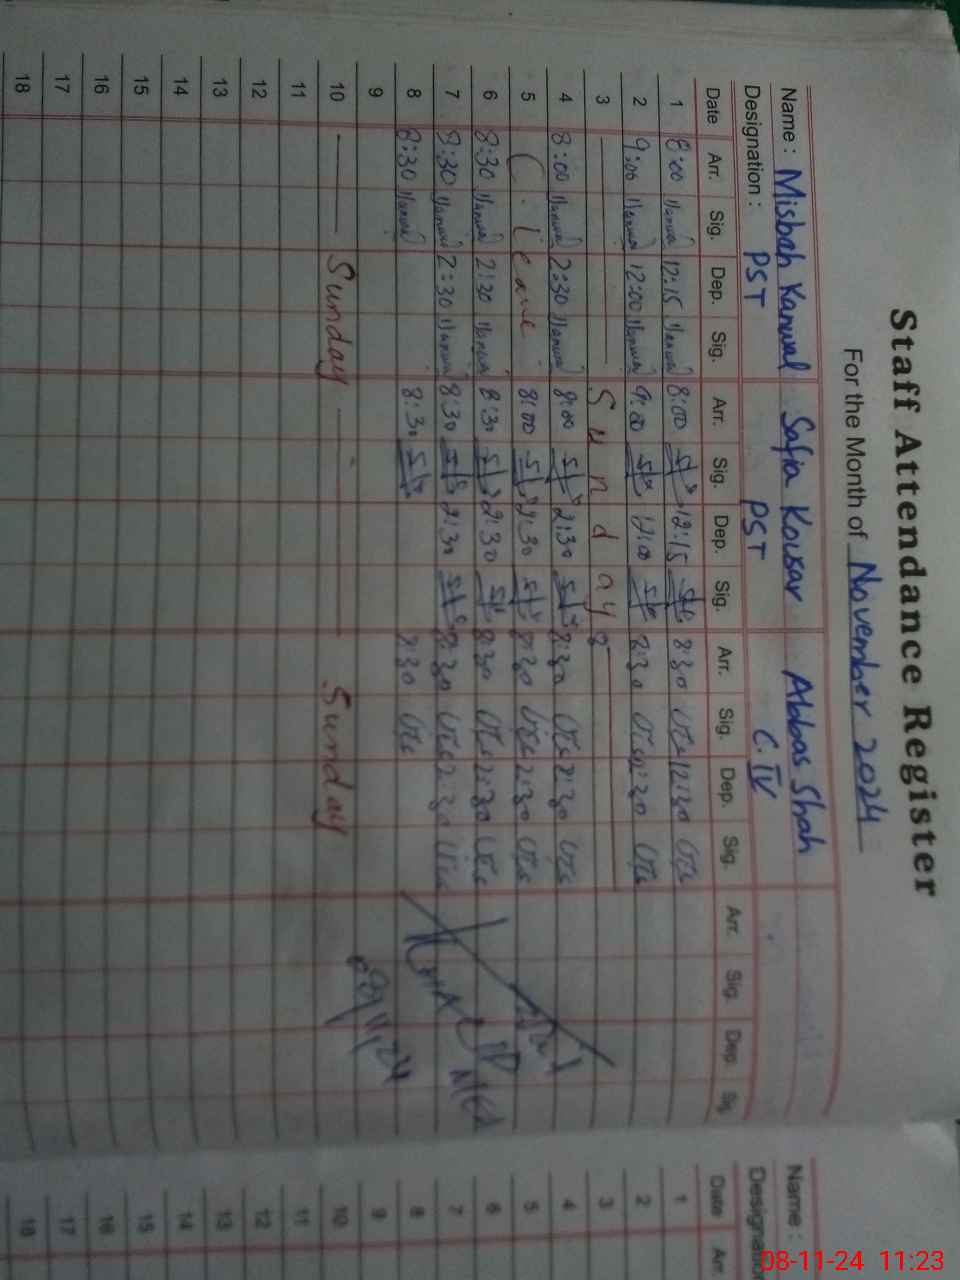 Staff Attendance Register
For the Month of November 2024
Name : Misbah Kanwal Safia Kousar Abbas Shah
Designation : PST PST C.IV
Date Arr. Sig. Dep. Sig. Arr. Sig. Dep. Sig. Arr. Sig. Dep. Sig. Arr. Sig. Dep. Sig.
1 8:00 12:15 8:00 12:15 8:30 12:30
2 9:00 12:00 9:00 12:00 8:30 2:30
3 Sunday
4 8:00 2:30 8:00 2:30 8:30 2:30
5 C. leave 8:00 2:30 8:30 2:30
6 8:30 2:30 8:30 2:30 8:30 2:30
7 8:30 2:30 8:30 2:30 8:30 2:30
8 8:30 8:30 8:30
9
10 Sunday Sunday
11
12
13
14
15
16
17
18
Name :
Designation
Date Arr.
1
2
3
4
5
6
7
8
9
10
11
12
13
14
15
16
17
18
08-11-24 11:23